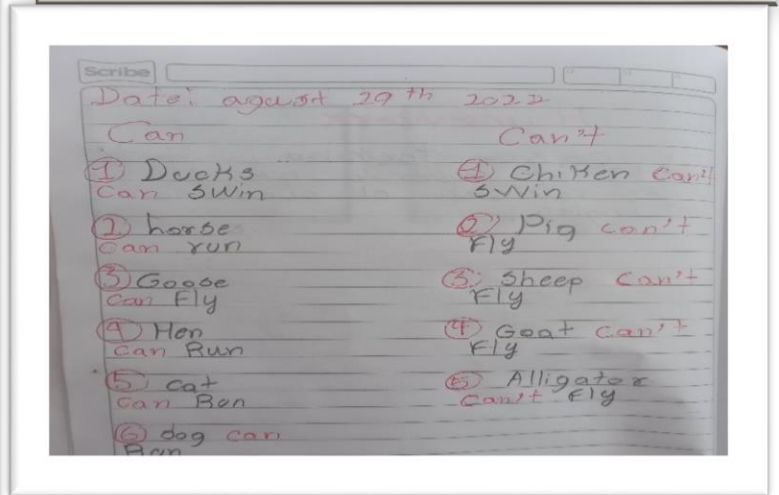 Scribe
Date: agaust 29 th 2022
Can Can't
1 Ducks
Can Swin
2 horse
Can run
3 Goose
Can Fly
4 Hen
Can Run
5 cat
Can Ran
6 dog can
Ran
1 Chiken Can't
Swin
2 Pig can't
Fly
3 Sheep Can't
Fly
4 Goat can't
Fly
5 Alligator
Can't Fly